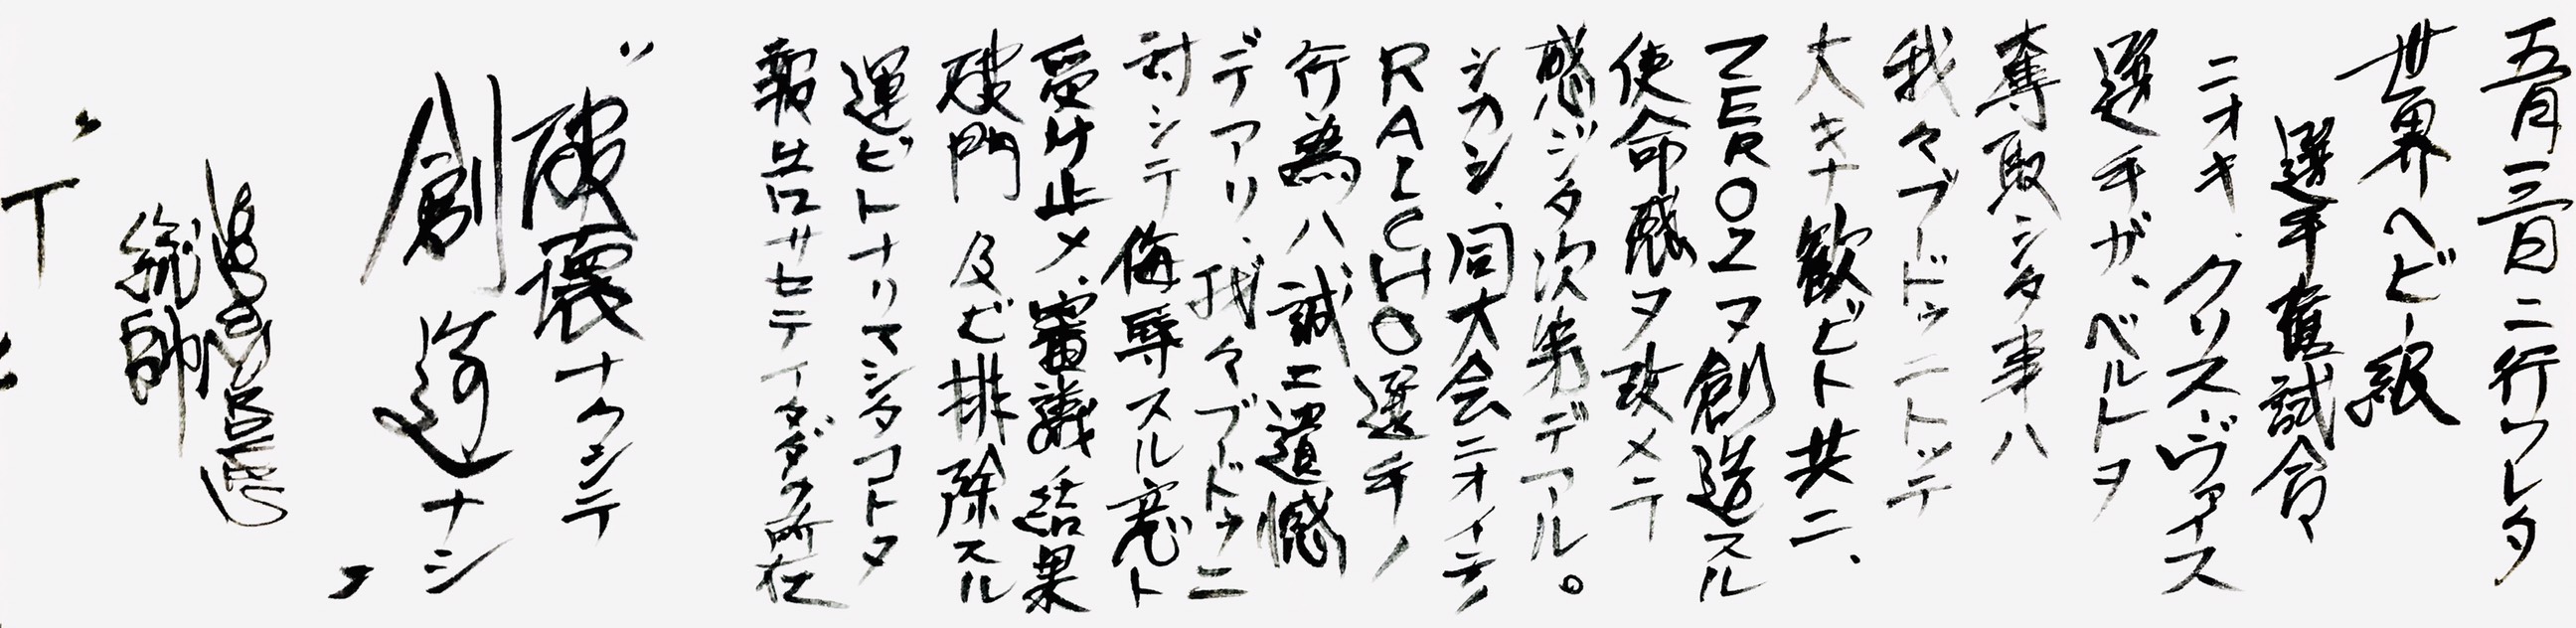 五月三日ニ行ワレタ
世界ヘビー級
選手権試合
ニオキ、クリス・ヴァイス
選手ガ、ベルトヲ
奪取シタ事ハ
我々ブドゥニトッテ
大キナ歓ビト共ニ、
ZERO1ヲ創造スル
使命感ヲ改メテ
感ジタ次第デアル。
シカシ、同大会ニオイテノ
RAICHO選手ノ
行為ハ誠ニ遺憾
デアリ、我々ブドゥニ
対シテ侮辱スル意ト
受け止メ、審議結果
破門及ビ排除スル
運ビトナリマシタコトヲ
報告サセテイタダク所在
"破壊ナクシテ
創造ナシ"
総帥